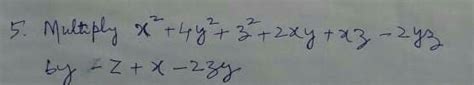 5. Multiply x² + 4y² + z² + 2xy + xz - 2yz
by - z + x - 2zy